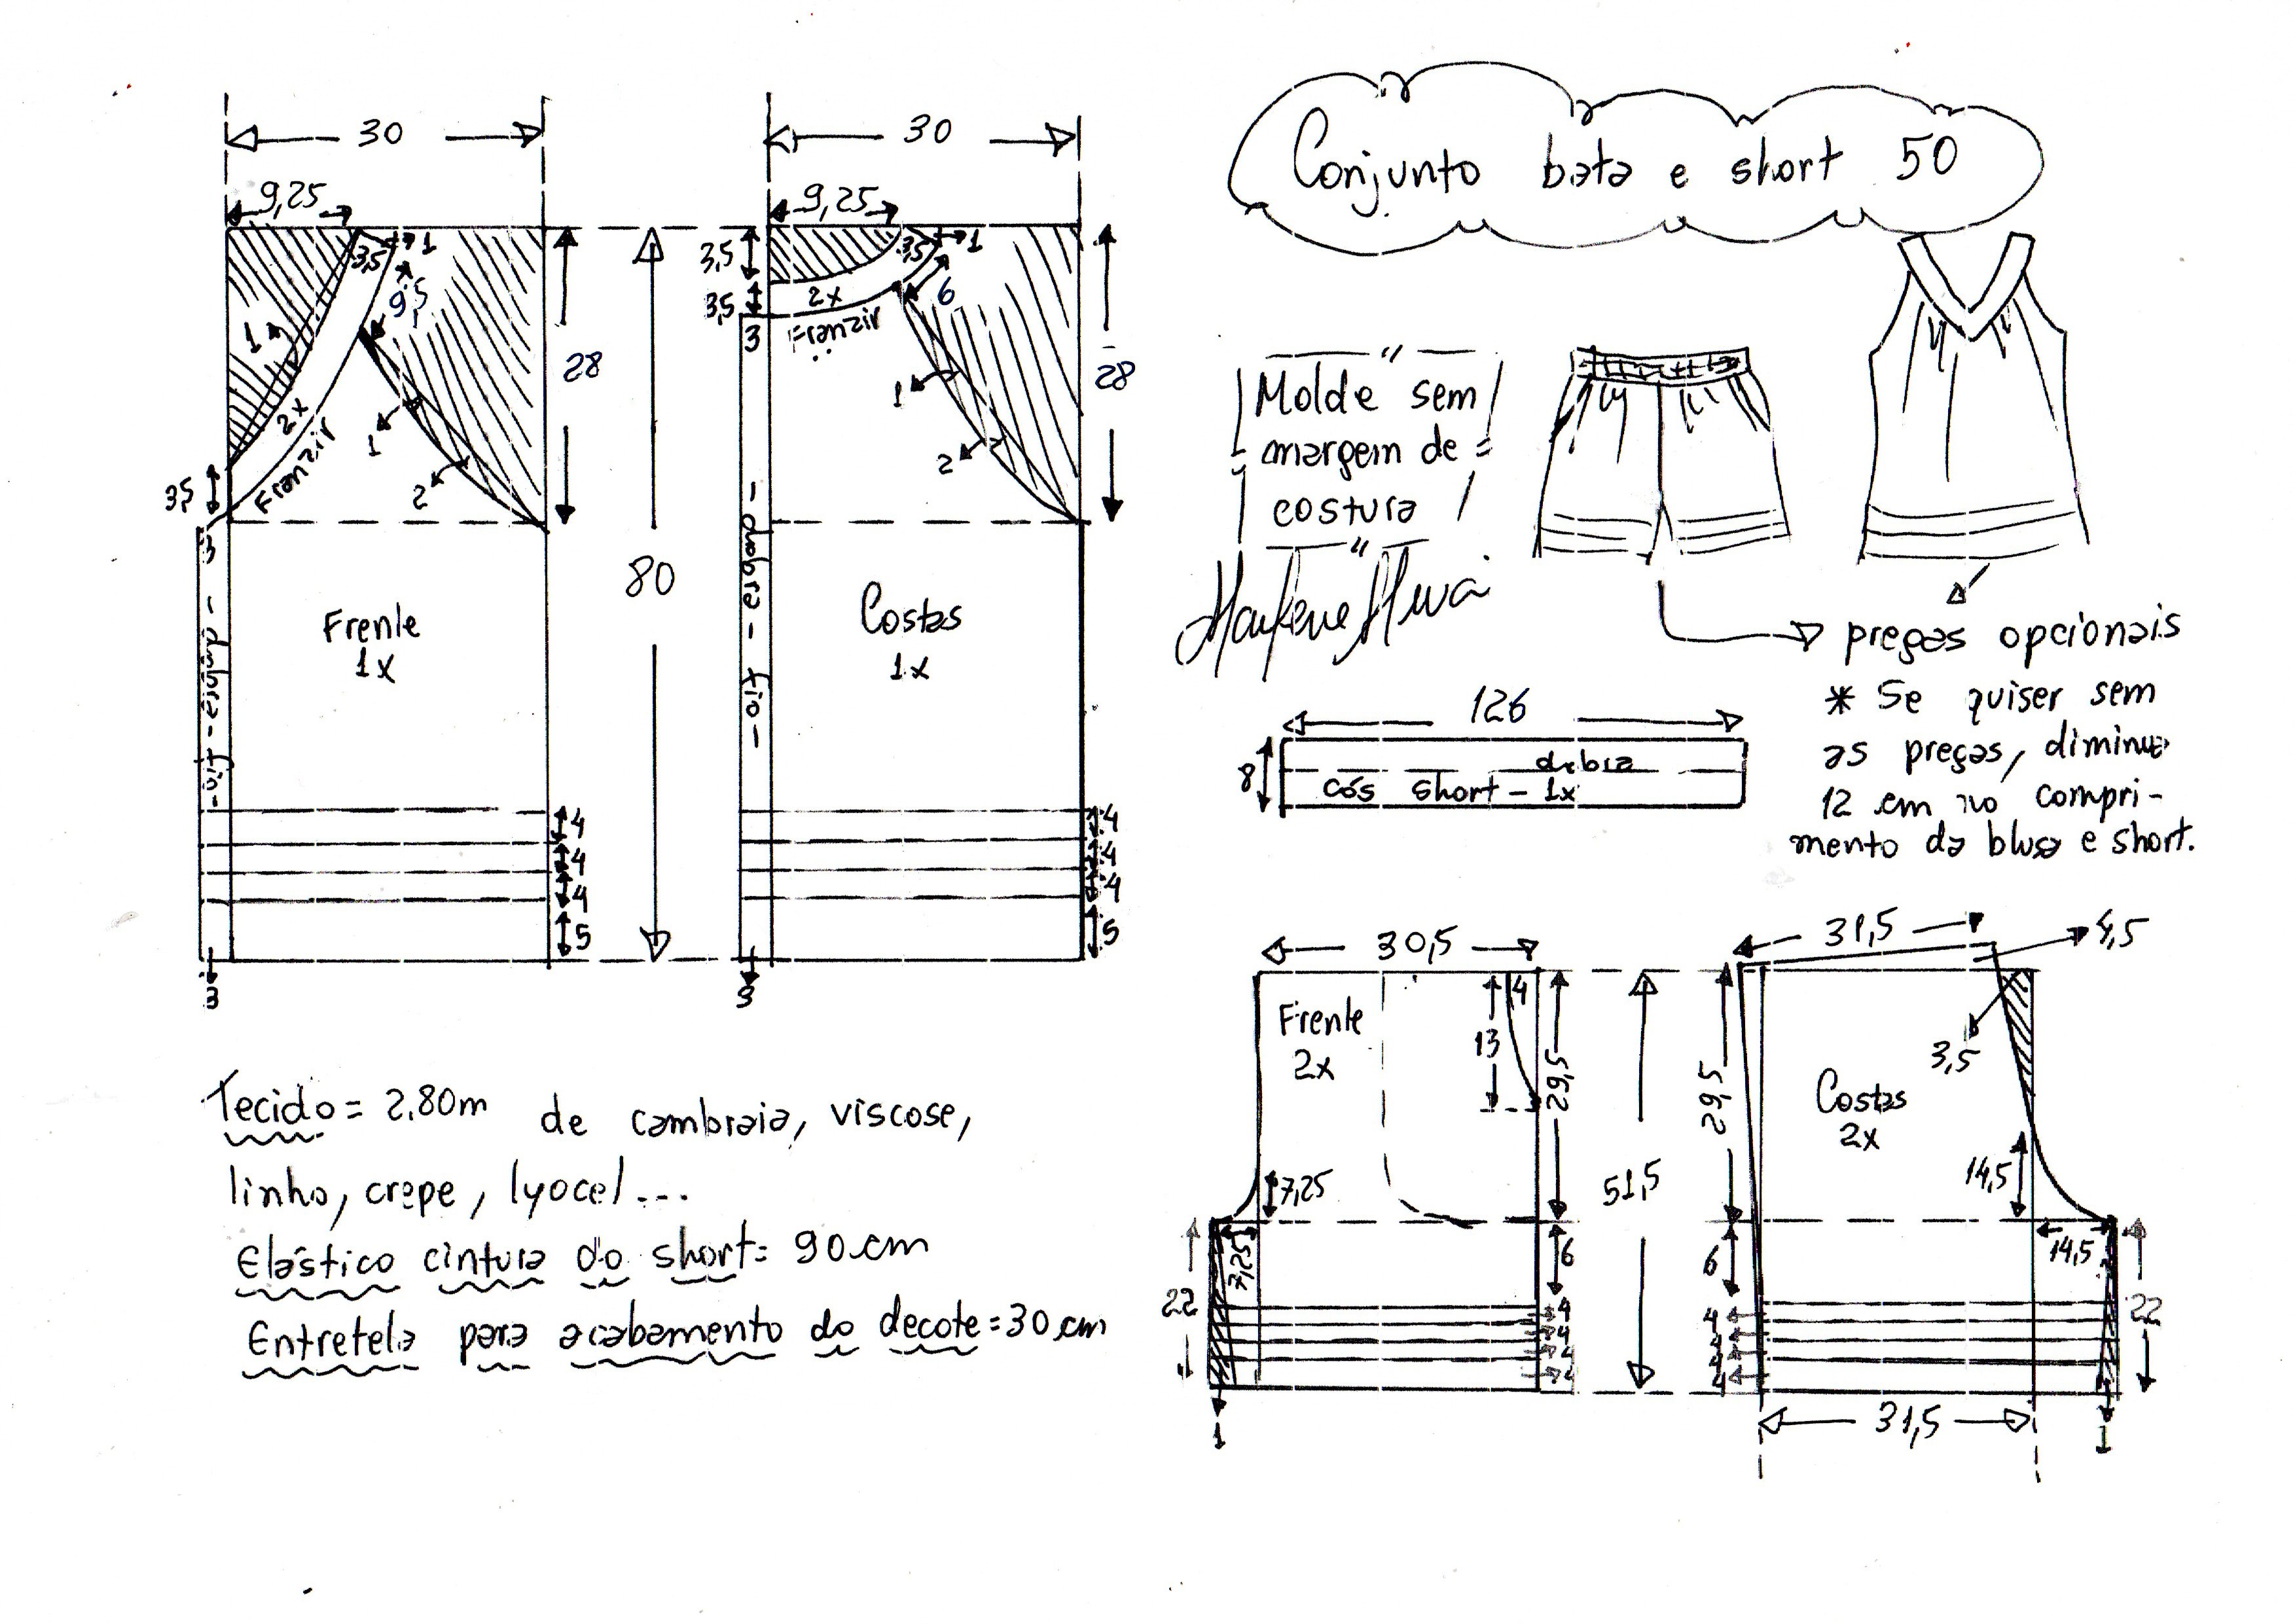 Conjunto bata e short 50
30
9,25
3,5
1
9,5
1
2x
Franzir
1
2
3,5
3
28
80
dobra - fio
Frente
1x
4
4
4
5
3
30
9,25
3,5
3,5
3,5
1
6
2x
Franzir
3
1
2
28
- dobra - fio -
Costas
1x
4
4
4
5
3
"
Molde sem
margem de
costura
"
Marlene Mukai
pregas opcionais
* Se quiser sem
as pregas, diminua
12 cm no compri-
mento da blusa e short.
126
8
dobra
cós short - 1x
Tecido = 2,80m de cambraia, viscose,
linho, crepe, lyocel...
Elástico cintura do short= 90 cm
Entretela para acabamento do decote = 30 cm
30,5
Frente
2x
4
13
29,5
7,25
7,25
22
6
4
4
4
4
1
51,5
31,5
4,5
3,5
29,5
Costas
2x
14,5
14,5
6
4
4
4
4
22
31,5
1